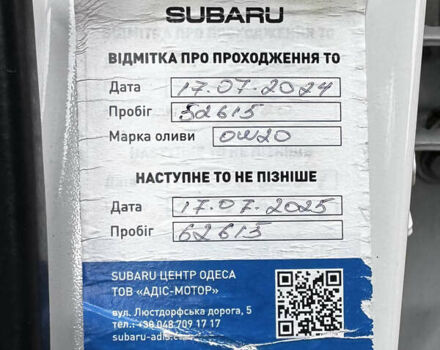 SUBARU
ВІДМІТКА ПРО ПРОХОДЖЕННЯ ТО
Дата 17.07.2024
Пробіг 52615
Марка оливи 0W20
НАСТУПНЕ ТО НЕ ПІЗНІШЕ
Дата 17.07.2025
Пробіг 62615
SUBARU ЦЕНТР ОДЕСА
ТОВ «АДІС-МОТОР»
вул. Люстдорфська дорога, 5
тел.: +38 048 709 17 17